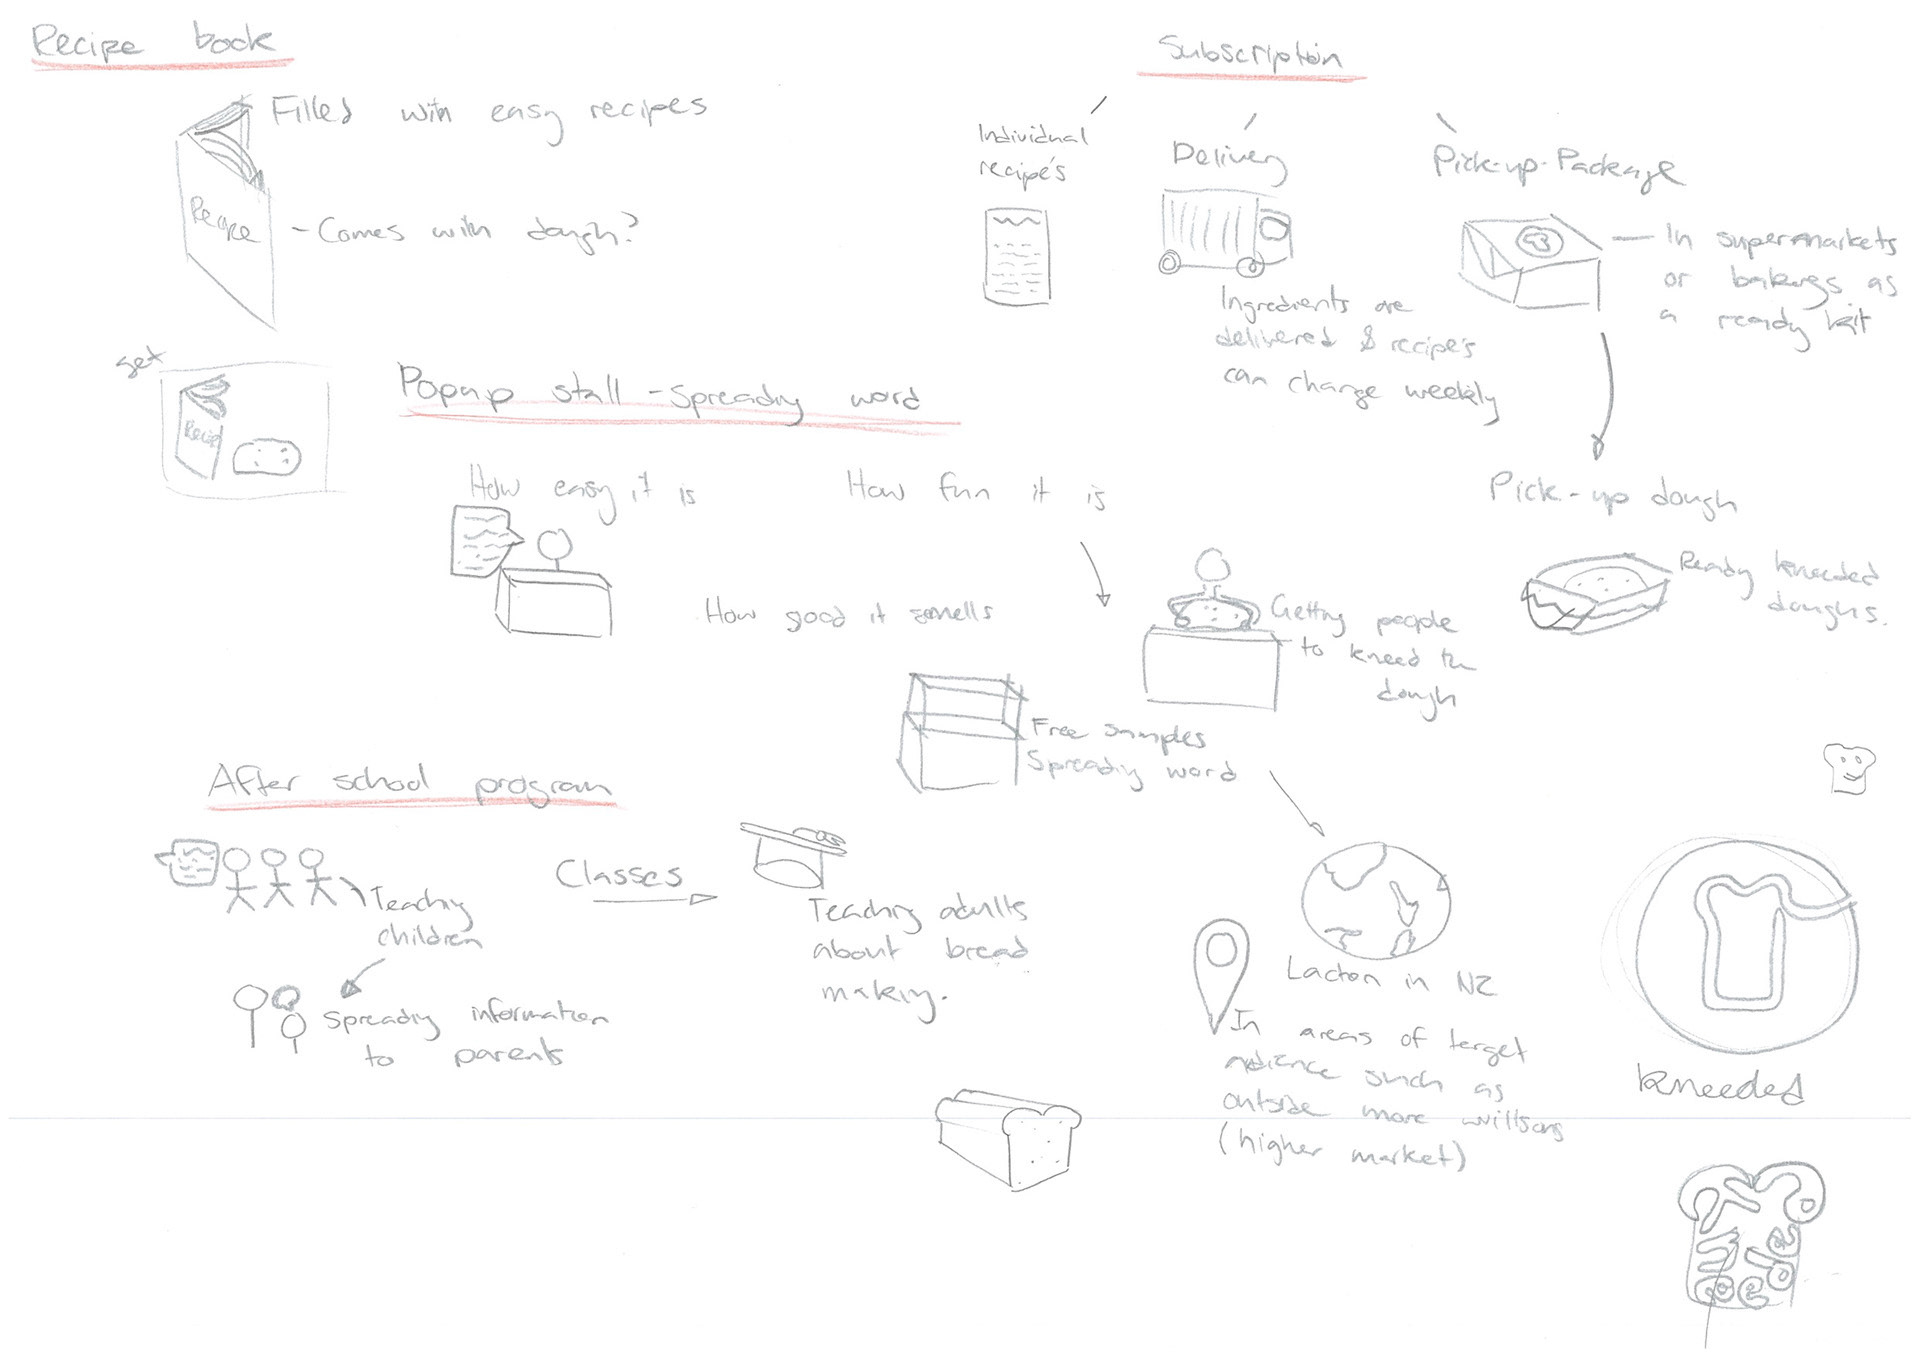 Recipe book
Filled with easy recipes
Recipe
- Comes with dough?
set
Recip
Subscription
Individual
recipe's
Delivery
Ingredients are
delivered & recipe's
can charge weekly
Pick-up-Package
In supermarkets
or bakerys as
a ready kit
Pick-up dough
Ready kneeded
doughs.
Popup stall - Spreadiy word
How easy it is
How fun it is
How good it smells
Getting people
to kneed the
dough
Free samples
Spreadiy word
Lacton in NZ
In areas of target
audience such as
outside more
(higher market)
After school program
Teachiy
children
Spreadiy information
to parents
Classes
Teachiy adults
about bread
makiy.
kneeded